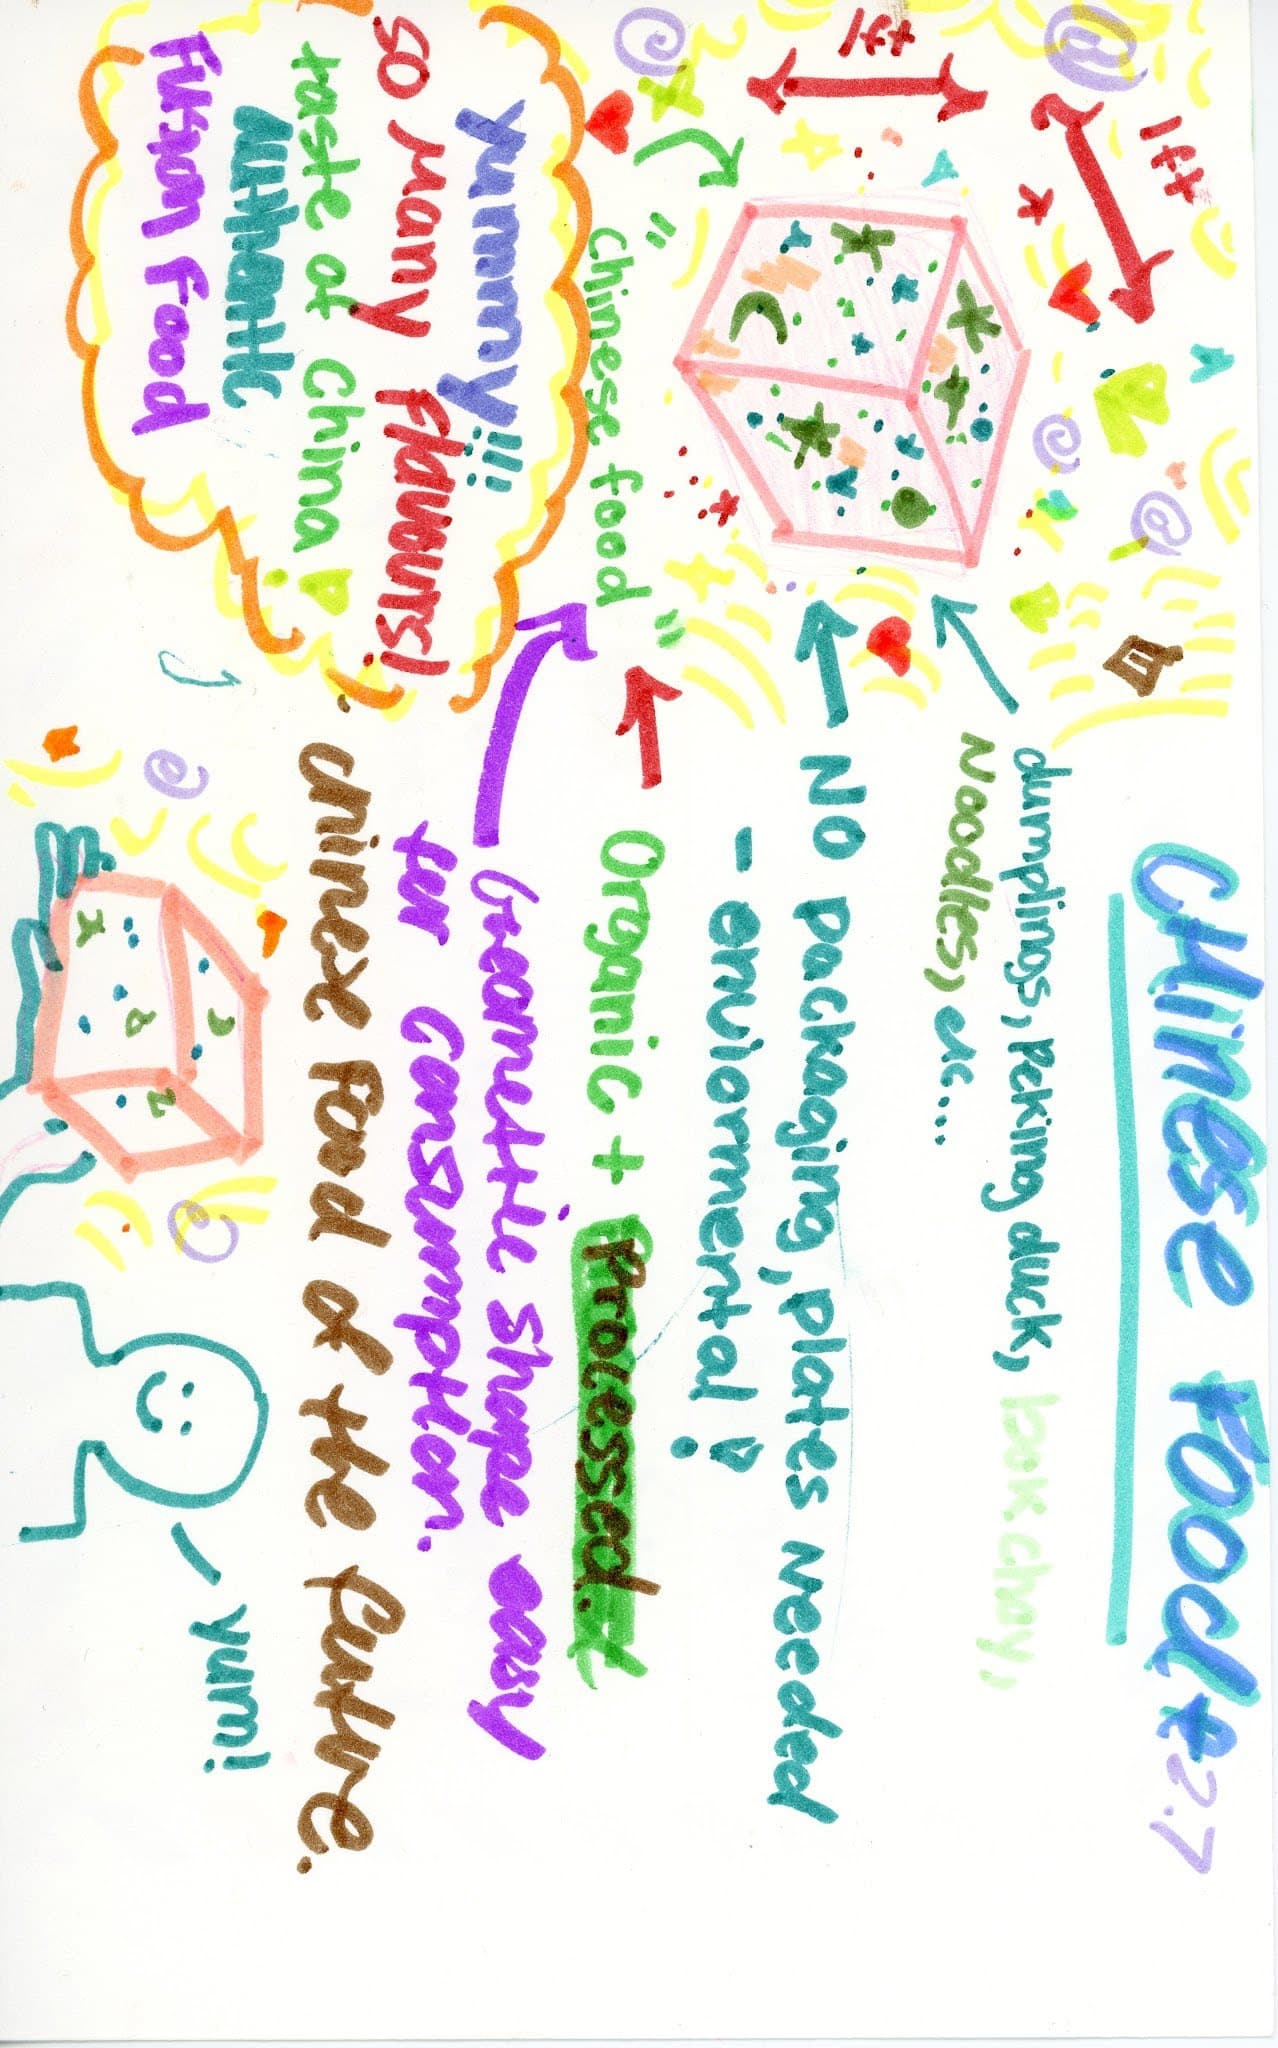 CHINESE FOOD
2.7
1ft
1ft
dumplings, Peking duck, bok choy,
Noodles, etc...
No packaging, plates needed
- enviormental!
"Chinese food"
Organic + Processed.
Geometric shape easy
for consumption.
chinese food of the future.
yummy!!!
so many flavours!
taste of China!
authentic
Fusion Food
yum!